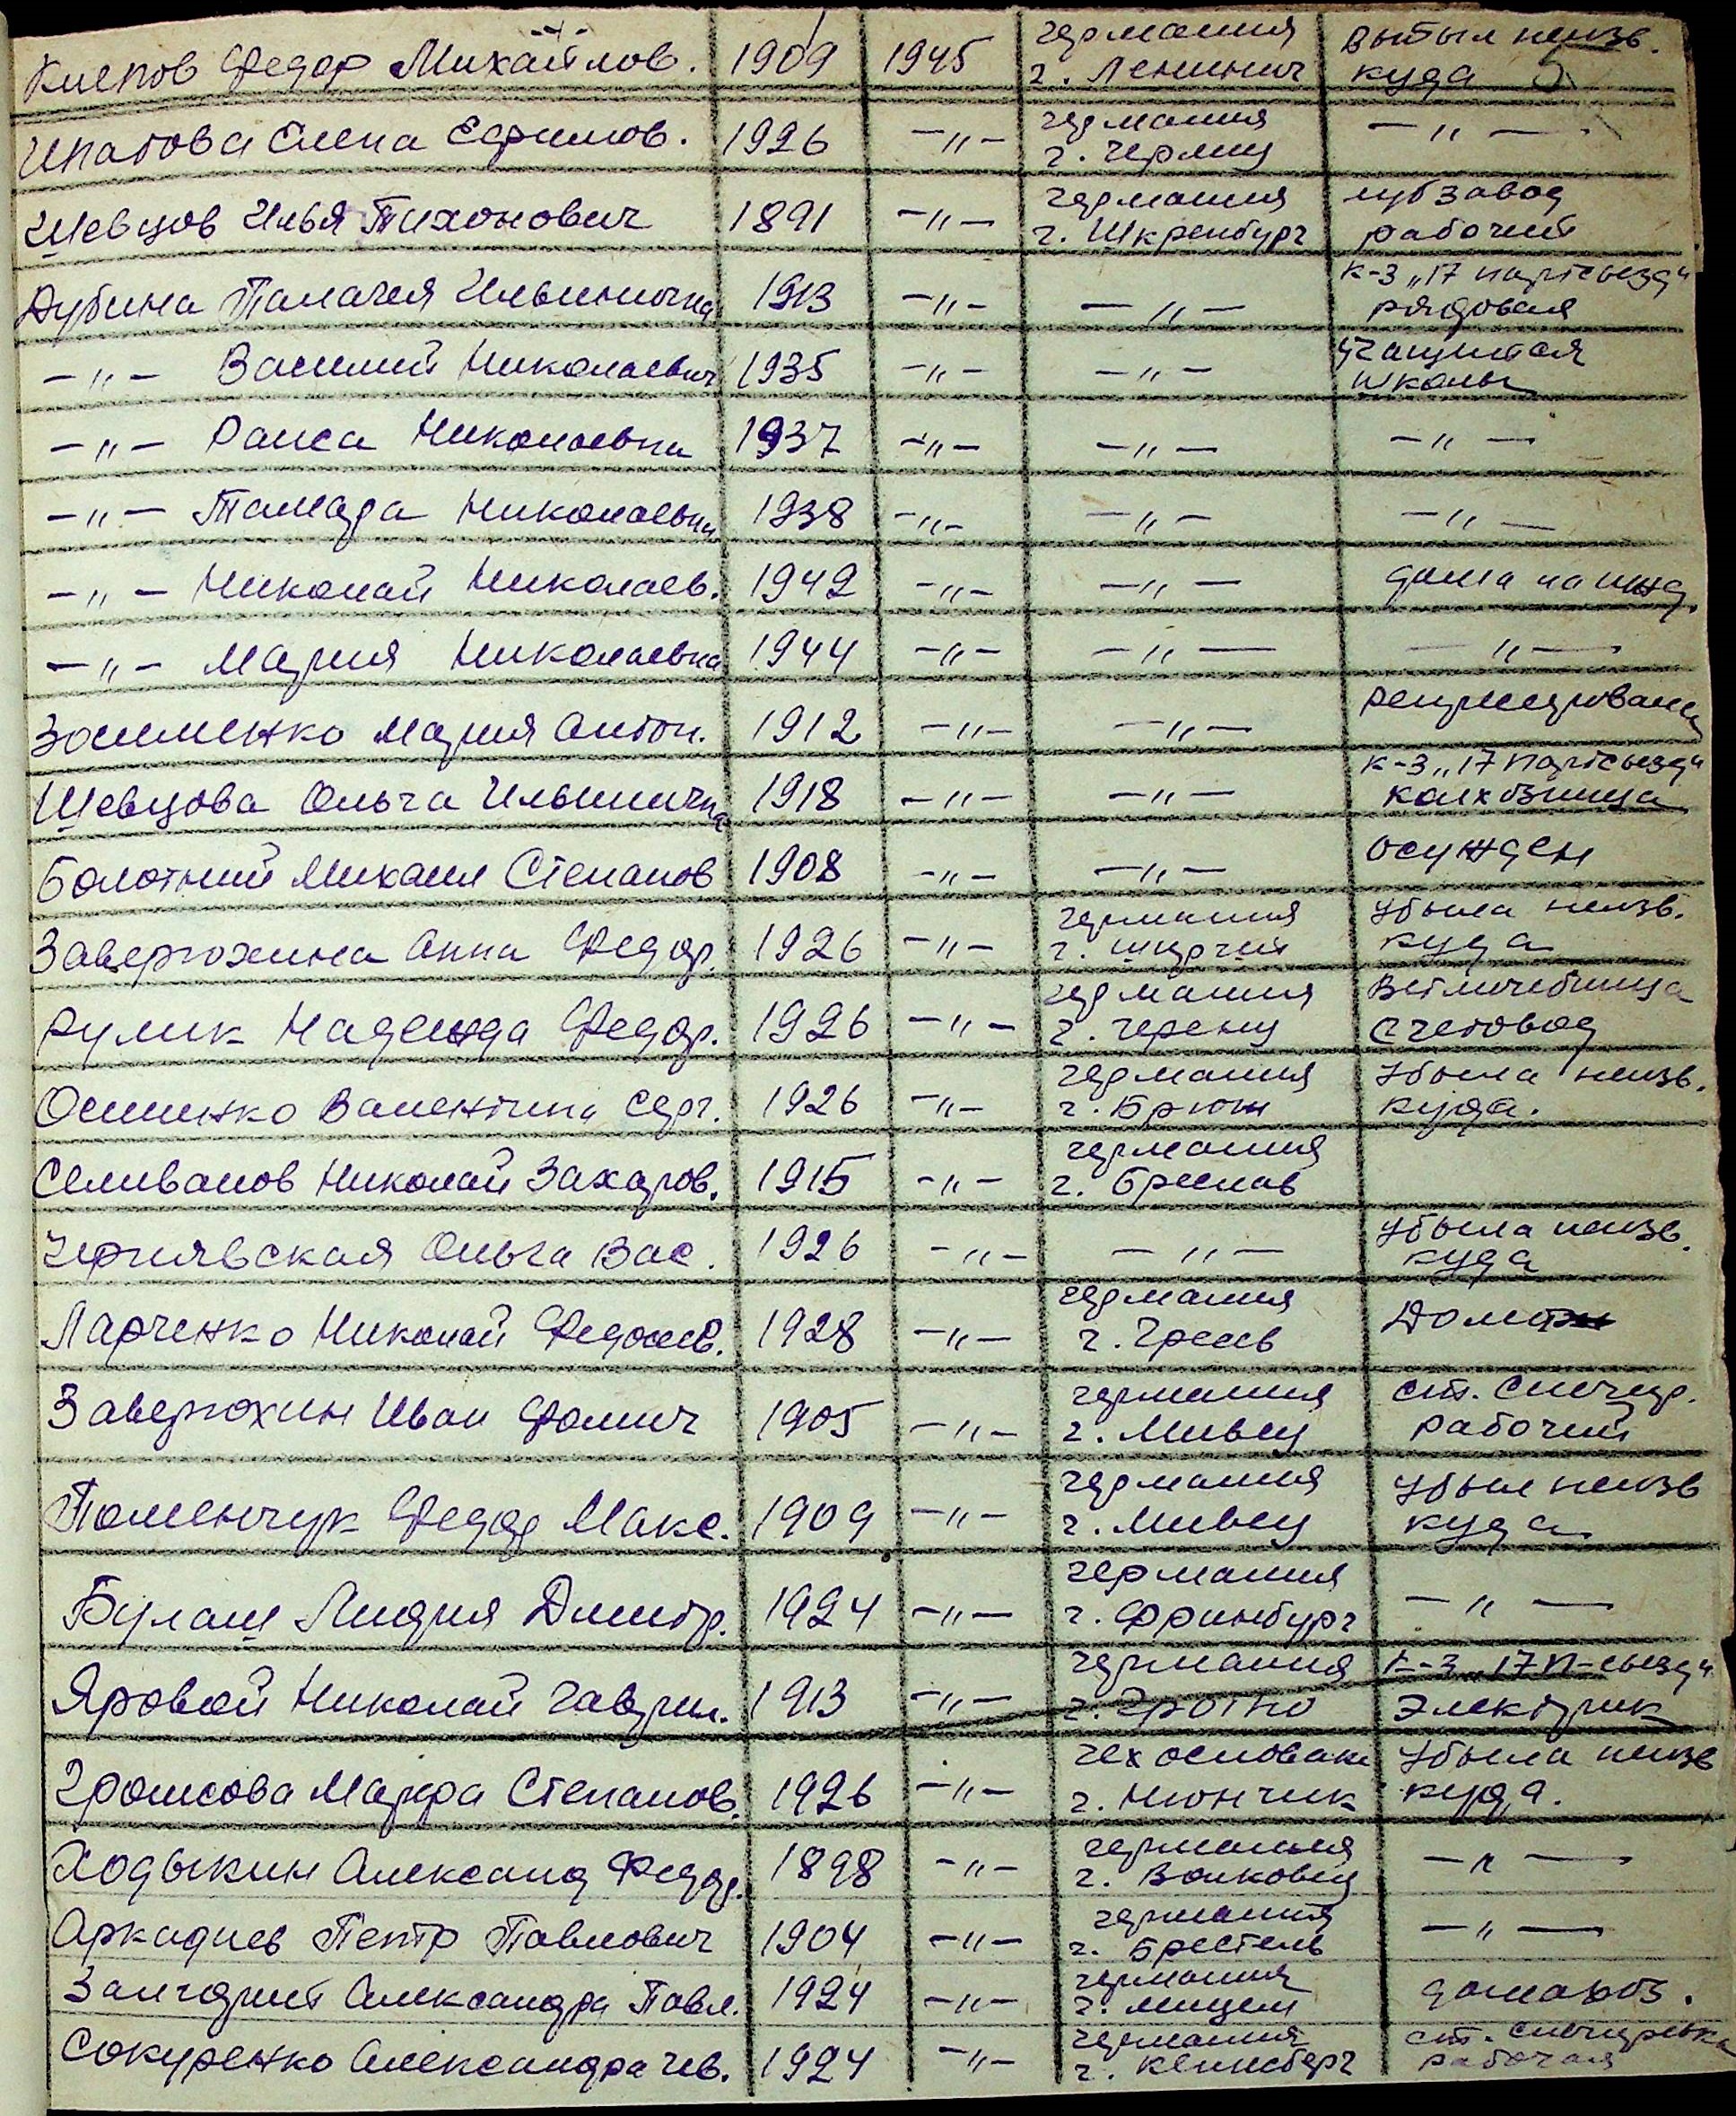 Клепов Федор Михайлов. 1909 1945 Германия г. Ленинич выбыл неизв. куда 5
Ипатова Елена Ефимов. 1926 -„- Германия г. Черлиц -„-
Шевцов Илья Тихонович 1891 -„- Германия г. Шкренбург лубзавод рабочий
Дубина Палагея Ильинична 1913 -„- -„- к-з „17 партсъезд" рядовая
-„- Василий Николаевич 1935 -„- -„- учащийся школы
-„- Раиса Николаевна 1937 -„- -„- -„-
-„- Тамара Николаевна 1938 -„- -„- -„-
-„- Николай Николаев. 1942 -„- -„- дома на ижд.
-„- Мария Николаевна 1944 -„- -„- -„-
Зосименко Мария Антон. 1912 -„- -„-
Шевцова Ольга Ильинична 1918 -„- -„- к-з „17 партсъезд" колхозница
Болотний Михаил Степанов 1908 -„- -„- осужден
Заверюхина Анна Федор. 1926 -„- Германия г. убыла неизв. куда
Рулик Надежда Федор. 1926 -„- Германия г. Черенц Ветлечебница счетовод
Осиненко Валентина Серг. 1926 -„- Германия г. Брюн убыла неизв. куда.
Селиванов Николай Захаров. 1915 -„- Германия г. Бреслав
Чернявская Ольга Вас. 1926 -„- -„- убыла неизв. куда
Ларченко Николай 1928 -„- Германия г. Дома
Заверюхин Иван Фомич 1905 -„- Германия г. Мивец ст. Снегир. рабочий
Поменчук Федор Макс. 1909 -„- Германия г. Мивец убыл неизв куда
Булаш Лидия Дмитр. 1924 -„- Германия г. Фринбург -„-
Яровой Николай Гаврил. 1913 -„- Германия г. Гротко к-з „17 п-съезд" электрик
Громсова Марфа Степанов. 1926 -„- Чехословак г. Нюнчик убыла неизв куда.
Ходыкин Александ Федор. 1898 -„- Германия г. Волковец -„-
Аркадиев Петр Павлович 1904 -„- Германия г. Брестель -„-
Александра Павл. 1924 -„- Германия г. домахоз.
Сокуренко Александра Ив. 1924 -„- Германия г. Кенисберг ст. Снегиревка рабочая